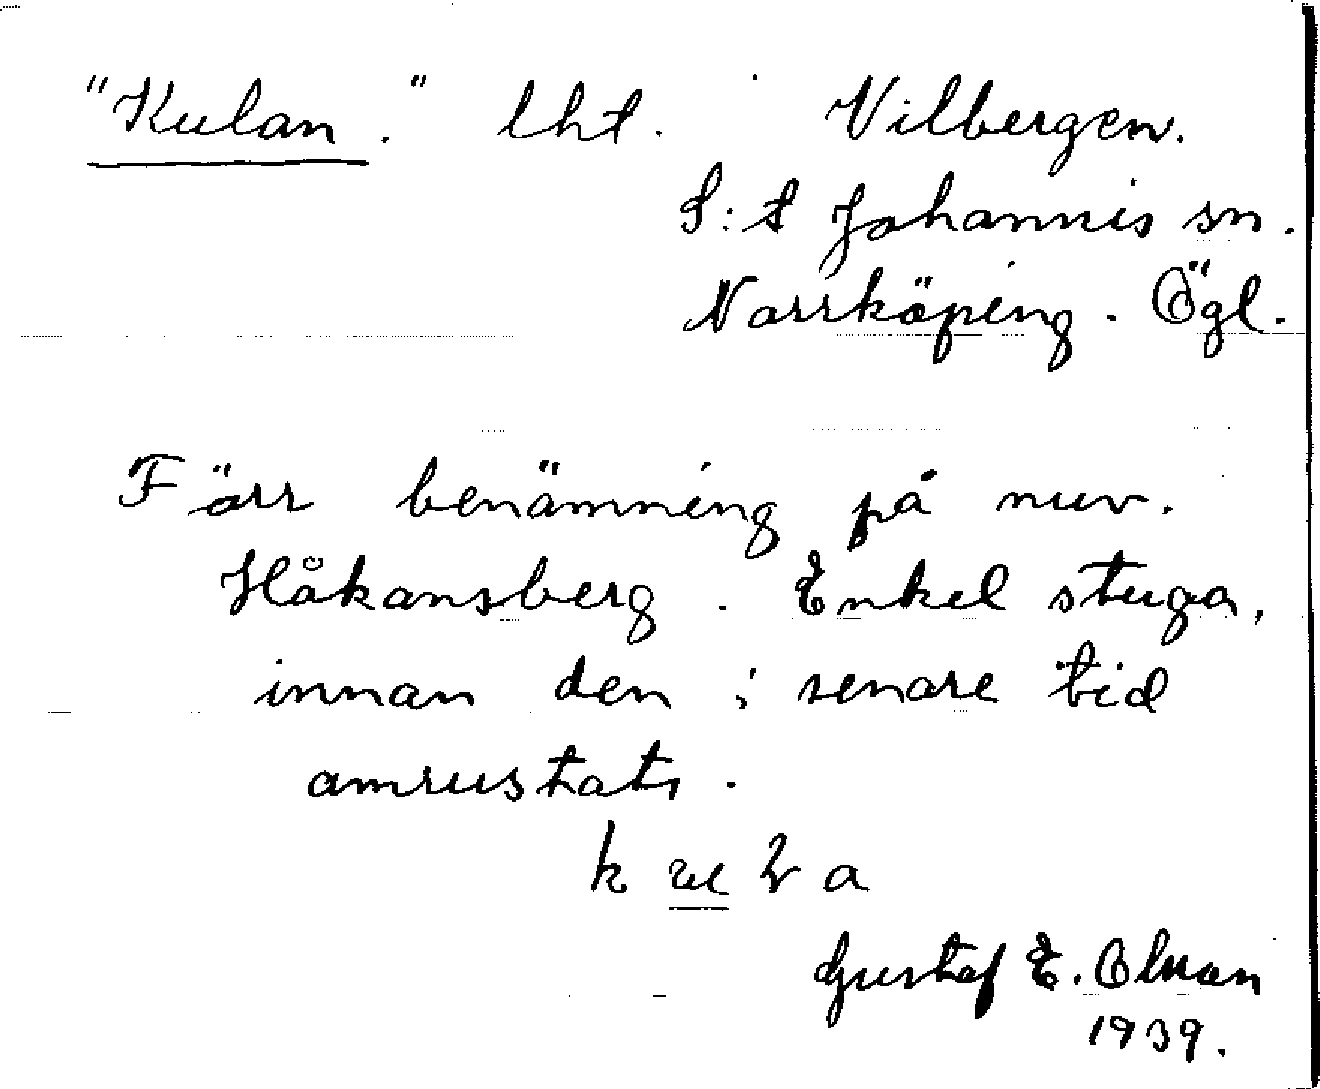 "Kulan." lht. Vilbergen.
S:t Johannis sn.
Norrköping. Ögl.
Förr benämning på nuv.
Håkansberg. Enkel stuga,
innan den i senare tid
omrustats.
Gustaf E. Olson
1939.